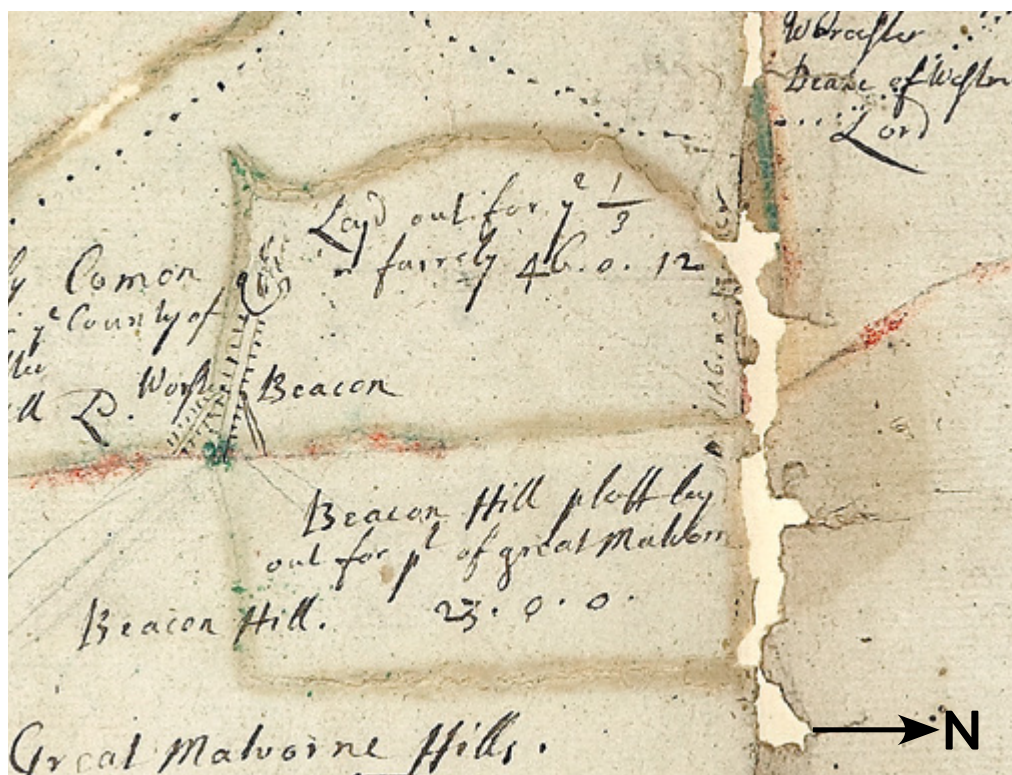 Worcester
Deane of Wester
Lord
Layd out for yᵉ 1/3
farrely 46. 0. 12
ly Comon
yᵉ County of
Worster
ll
Beacon
Beacon Hill plott ley
out for pᵗ of great Malvorn
23. 0. 0.
Beacon Hill.
Great Malvorne Hills.
N